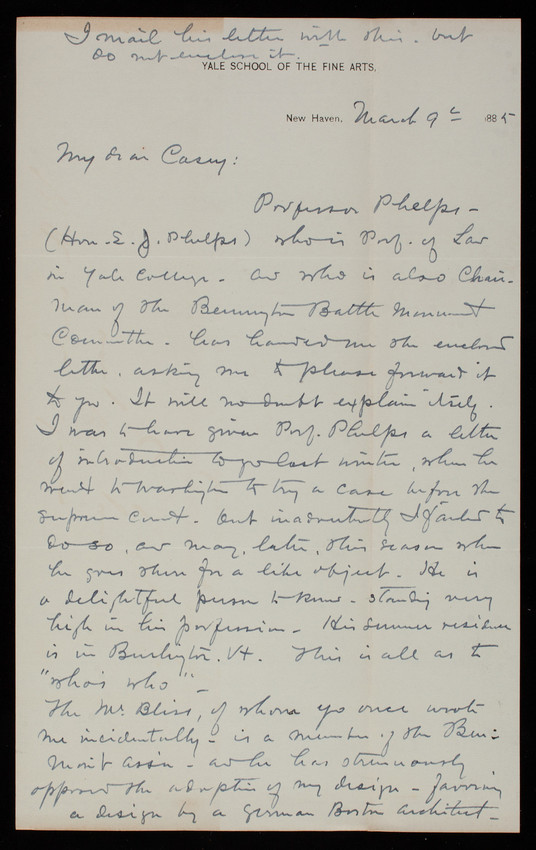 I mail his letter with this - but
do not enclose it.
YALE SCHOOL OF THE FINE ARTS.
New Haven, March 9th 1885
My dear Casey:
Professor Phelps -
(Hon. E. J. Phelps) who is Prof. of Law
in Yale College - and who is also Chair-
man of the Bennington Battle Monument
Committee - has handed me the enclosed
letter, asking me to please forward it
to you. It will no doubt explain itself.
I was to have given Prof. Phelps a letter
of introduction to you last winter, when he
went to Washington to try a case before the
Supreme Court - but inadvertently I failed to
do so, and may, later, this season when
he goes there for a like object. He is
a delightful person to know - standing very
high in his profession - His summer residence
is in Burlington, Vt. This is all as to
"who's who" -
The Mr. Bliss, of whom you once wrote
me incidentally - is a member of the Ben:
Mont Ass'n - and he has strenuously
opposed the adoption of my design - favoring
a design by a German Boston architect -